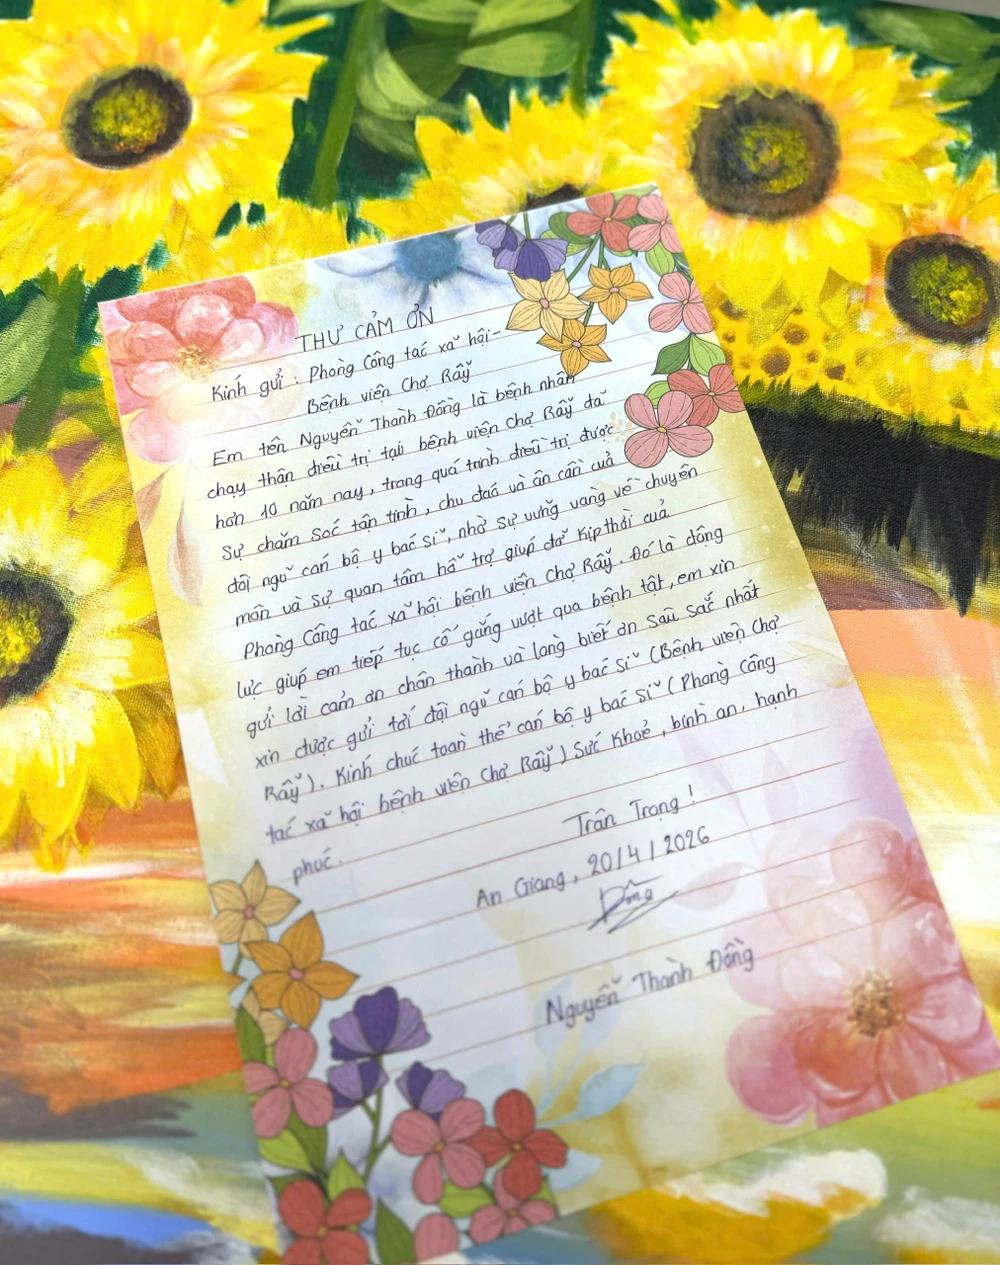 THƯ CẢM ƠN
Kính gửi : Phòng Công tác xã hội -
Bệnh viện Chợ Rẫy
Em tên Nguyễn Thanh Đồng là bệnh nhân
chạy thận điều trị tại bệnh viện Chợ Rẫy đã
hơn 10 năm nay, trong quá trình điều trị được
sự chăm sóc tận tình, chu đáo và ân cần của
đội ngũ cán bộ y bác sĩ, nhờ sự vững vàng về chuyên
môn và sự quan tâm hỗ trợ giúp đỡ kịp thời của
Phòng Công tác xã hội bệnh viện Chợ Rẫy. Đó là động
lực giúp em tiếp tục cố gắng vượt qua bệnh tật, em xin
gửi lời cảm ơn chân thành và lòng biết ơn sâu sắc nhất
xin được gửi tới đội ngũ cán bộ y bác sĩ (Bệnh viện Chợ
Rẫy). Kính chúc toàn thể cán bộ y bác sĩ (Phòng công
tác xã hội bệnh viện Chợ Rẫy) Sức Khoẻ, bình an, hạnh
phúc.
Trân Trọng !
An Giang, 20/4/2026
Đồng
Nguyễn Thanh Đồng